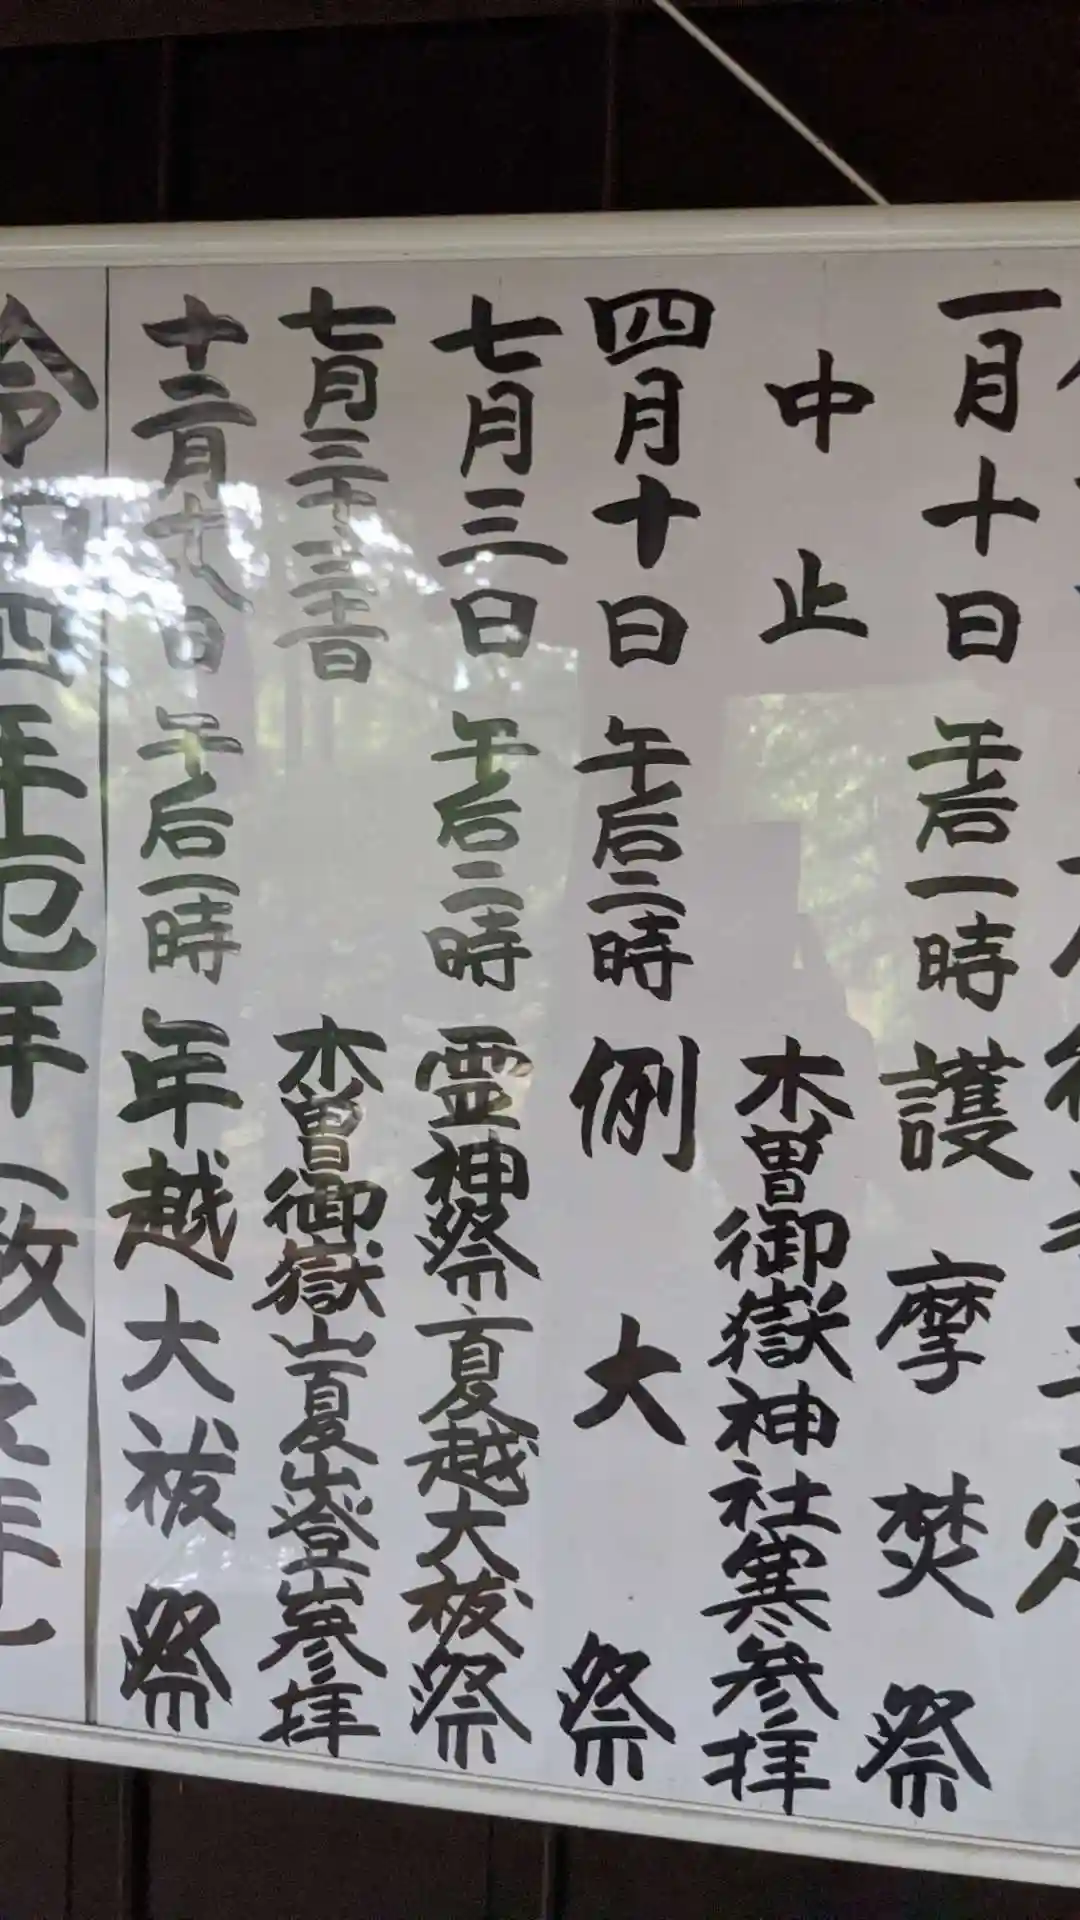 一月十日 午后一時 護摩焚祭
中止 木曽御嶽神社寒参拝
四月十日 午后二時 例大祭
七月三日 午后二時 霊神祭夏越大祓祭
七月三十、三十一日 木曽御嶽山夏山登山参拝
十二月廿九日 午后一時 年越大祓祭
令和四年厄年(数え年)